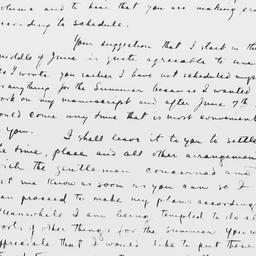 volume and to hear that you are making
according to schedule.
Your suggestion that I start in the
middle of June is quite agreeable to me
As I wrote you earlier I have not scheduled
anything for the Summer because I wanted
work on my manuscript and after June 7th
could come any time that is most convenient
to you.
I shall leave it to you to settle
the time, place and all other arrangemen
with the gentlemen concerned and
let me know as soon as you can so I
can proceed to make my plans according
Meanwhile I am being tempted to do a
lot of other things for the Summer you w
appreciate that I would like to put these